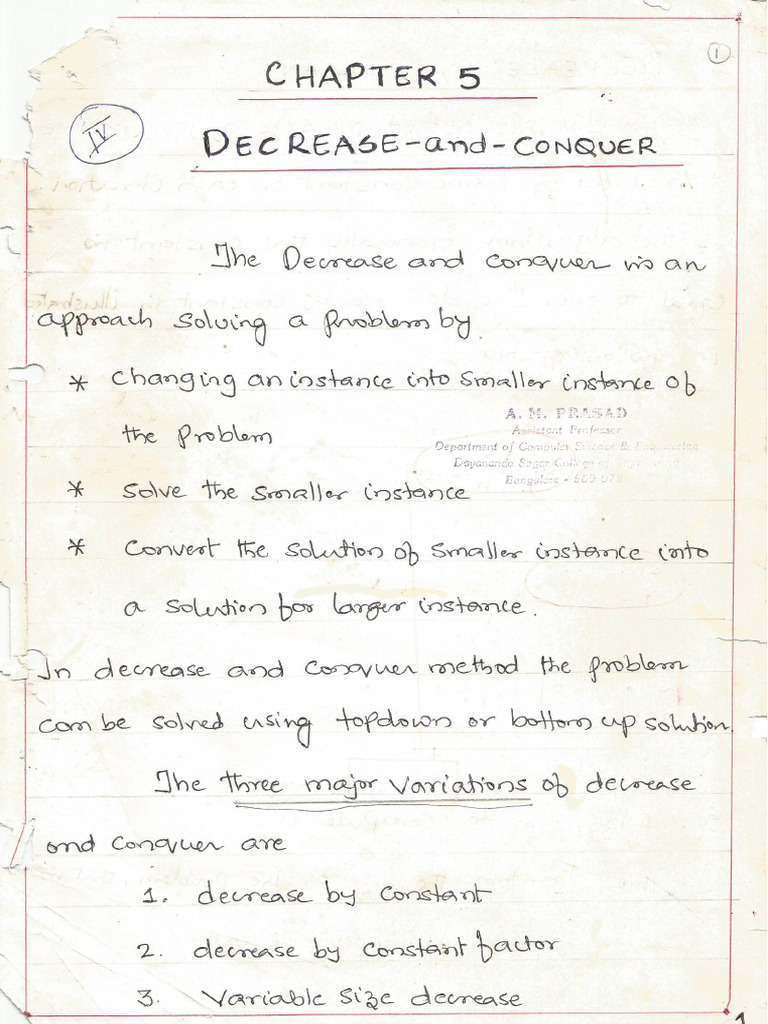 1
CHAPTER 5
IV
DECREASE-and-CONQUER
The Decrease and conquer is an
approach solving a problem by
* Changing an instance into smaller instance of
the problem
A. M. PRASAD
Assistant Professor
Department of Computer Science & Engineering
Dayananda Sagar College of Engineering
Bangalore - 560 078
* Solve the smaller instance
* Convert the solution of smaller instance into
a solution for larger instance.
In decrease and conquer method the problem
can be solved using topdown or bottom up solution.
The three major variations of decrease
and conquer are
1. decrease by constant
2. decrease by constant factor
3. Variable size decrease
1